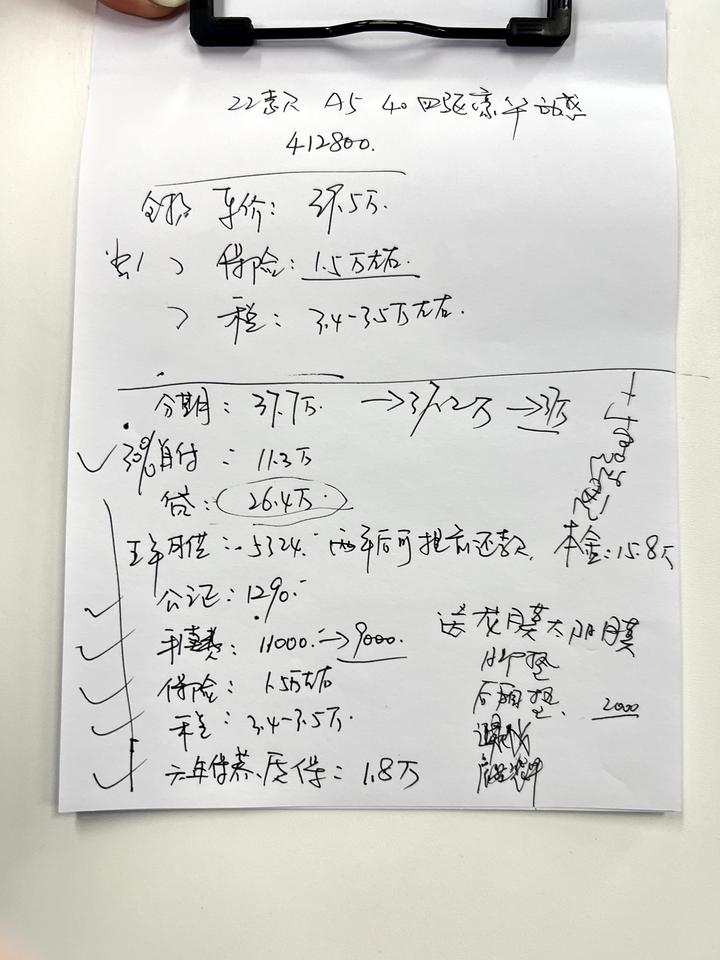 22款 A5 40 四驱豪华动感
412800.
全款 车价：38.5万.
保险：1.5万左右.
税：3.4-3.5万左右.
分期：37.7万. →37.2万 →37万
30%首付：11.3万
贷：26.4万.
五年月供：5324. 两年后可提前还款. 本金：15.8万
公证：1290.
手续费：11000. →9000.
送 花膜太阳膜
脚垫
保险：1.5万左右
后厢垫. 2000
税：3.4-3.5万.
六年保养、质保：1.8万